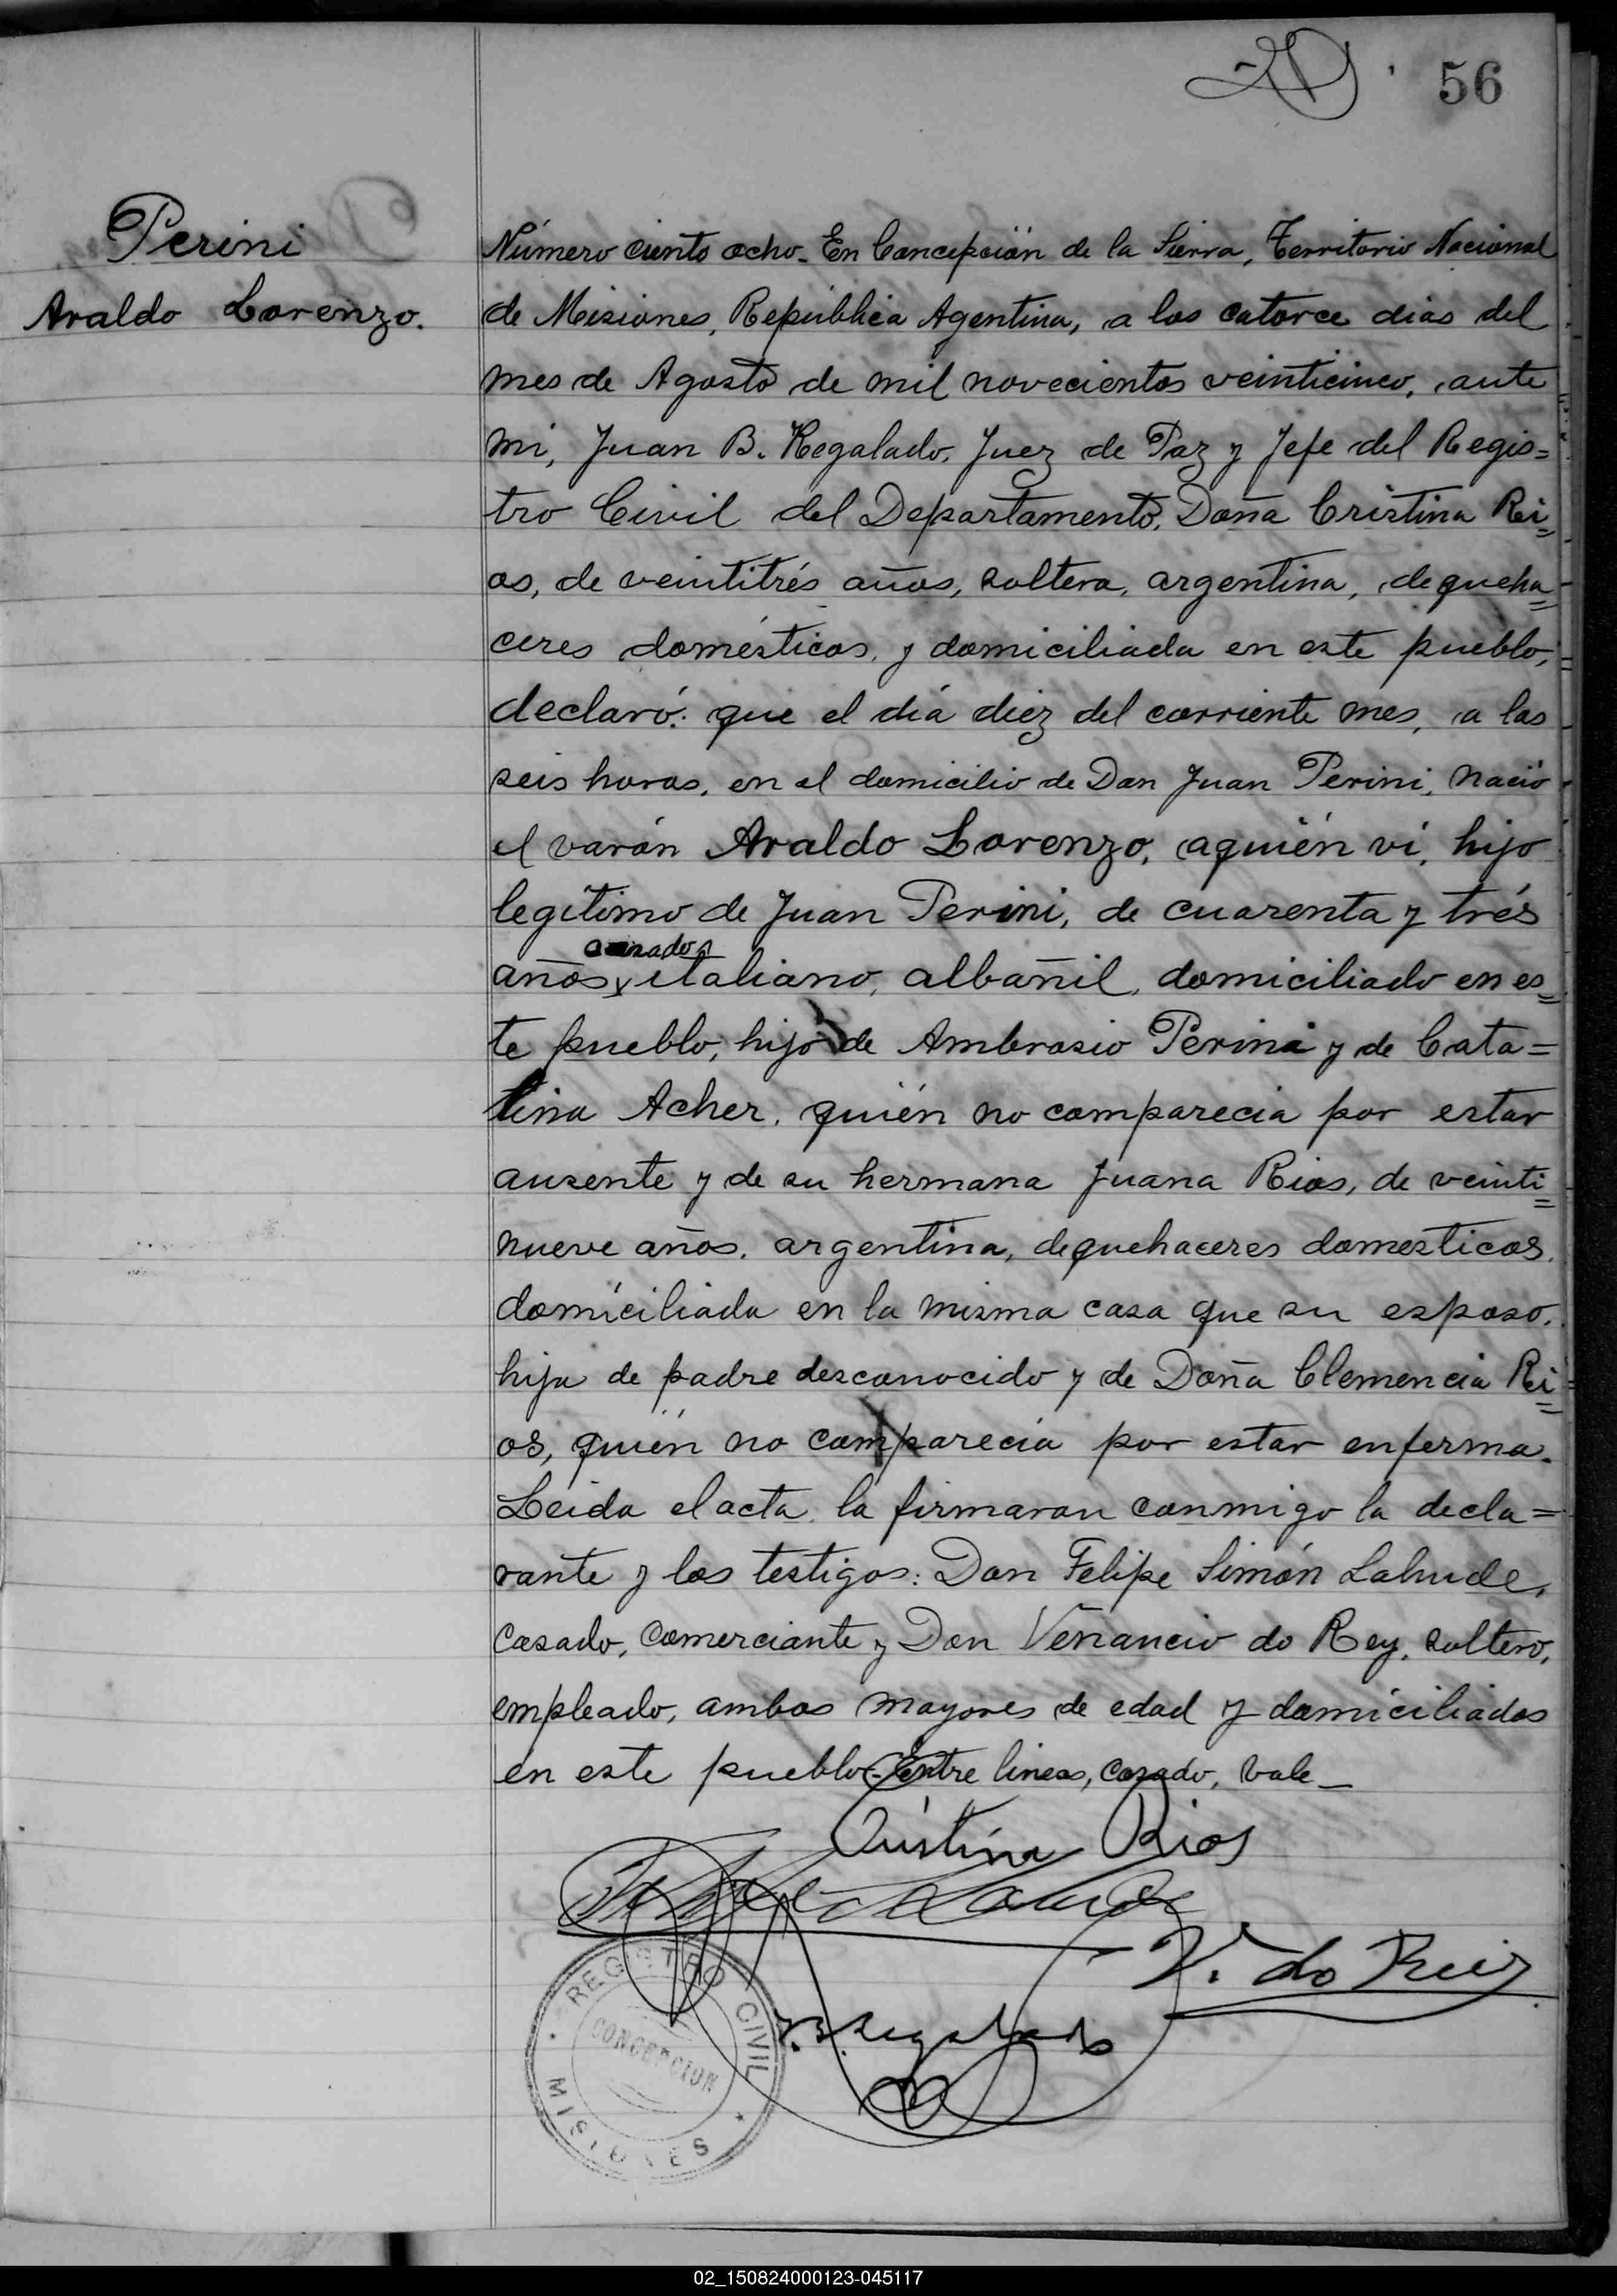 56
Perini
Araldo Lorenzo.
Número ciento ocho_ En Concepción de la Sierra, Territorio Nacional
de Misiones, República Agentina, a los catorce dias del
mes de Agosto de mil novecientos veinticinco, ante
mi, Juan B. Regalado, Juez de Paz y Jefe del Regis=
tro Civil del Departamento, Doña Cristina Ri=
os, de veintitrés años, soltera, argentina, de queha=
ceres domésticos, y domiciliada en este pueblo,
declaró: que el día diez del corriente mes, a las
seis horas, en el domicilio de Don Juan Perini, nació
el varón Araldo Lorenzo, aquién vi, hijo
legítimo de Juan Perini, de cuarenta y trés
casado,
años, italiano, albañil, domiciliado en es=
te pueblo, hijo de Ambrosio Perini y de Cata=
lina Acher, quién no comparecia por estar
ausente y de su hermana Juana Rios, de veinti=
nueve años, argentina, dequehaceres domesticos,
domiciliada en la misma casa que su esposo,
hija de padre desconocido y de Doña Clemencia Ri=
os, quién no comparecía por estar enferma.
Leida el acta, la firmaron conmigo la decla=
rante y los testigos: Don Felipe Simón Lahude,
casado, comerciante y Don Venancio do Rey, soltero,
empleado, ambos mayores de edad y domiciliados
en este pueblo. Entre lineas, casado, vale_
Cristina Rios
V. do Rey
J.B. Regalado
REGISTRO CIVIL
CONCEPCION
MISIONES
02_150824000123-045117